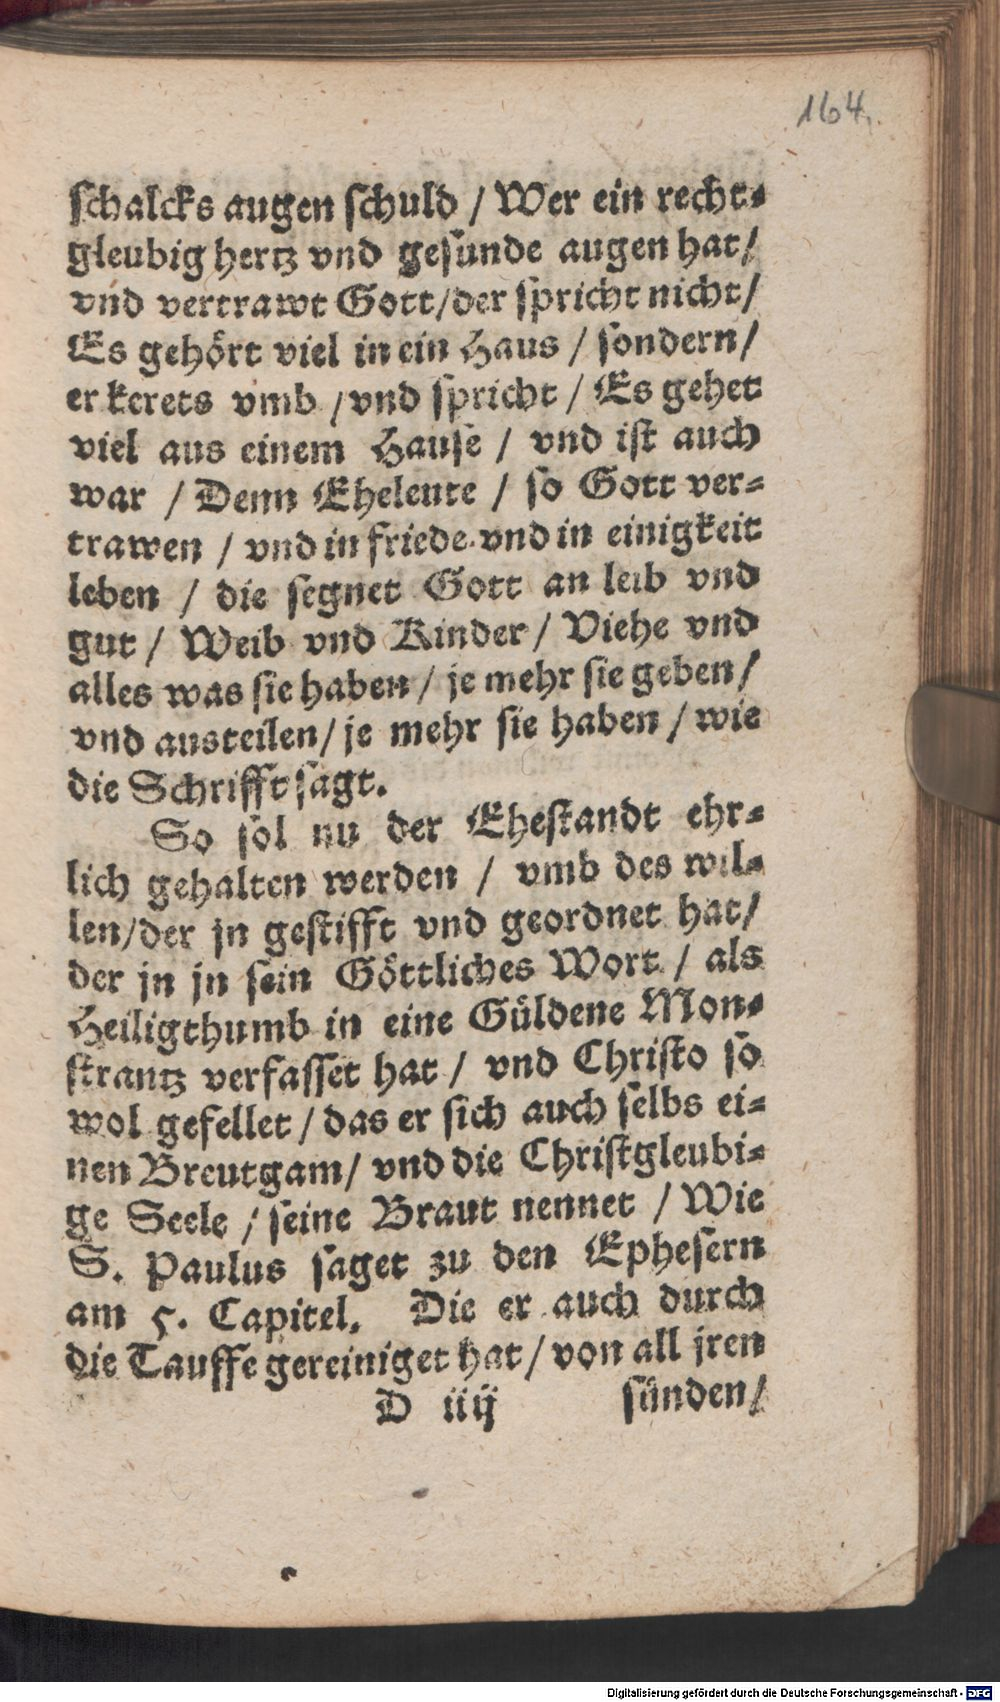 164.
schalcks augen schuld / Wer ein recht-
gleubig hertz vnd gesunde augen hat/
vnd vertrawt Gott/der spricht nicht/
Es gehört viel in ein Haus / sondern/
er kerets vmb /vnd spricht / Es gehet
viel aus einem Hause / vnd ist auch
war / Denn Eheleute / so Gott ver-
trawen / vnd in friede vnd in einigkeit
leben / die segnet Gott an leib vnd
gut / Weib vnd Kinder / Viehe vnd
alles was sie haben / je mehr sie geben/
vnd austeilen/ je mehr sie haben / wie
die Schrifft sagt.
So sol nu der Ehestandt ehr-
lich gehalten werden / vmb des wil-
len/der jn gestifft vnd geordnet hat/
der jn jn sein Göttliches Wort / als
Heiligthumb in eine Güldene Mon-
strantz verfasset hat / vnd Christo so
wol gefellet / das er sich auch selbs ei-
nen Breutgam/ vnd die Christgleubi-
ge Seele / seine Braut nennet / Wie
S. Paulus saget zu den Ephesern
am 5. Capitel. Die er auch durch
die Tauffe gereiniget hat / von all jren
D iiij sünden/
Digitalisierung gefördert durch die Deutsche Forschungsgemeinschaft - DFG